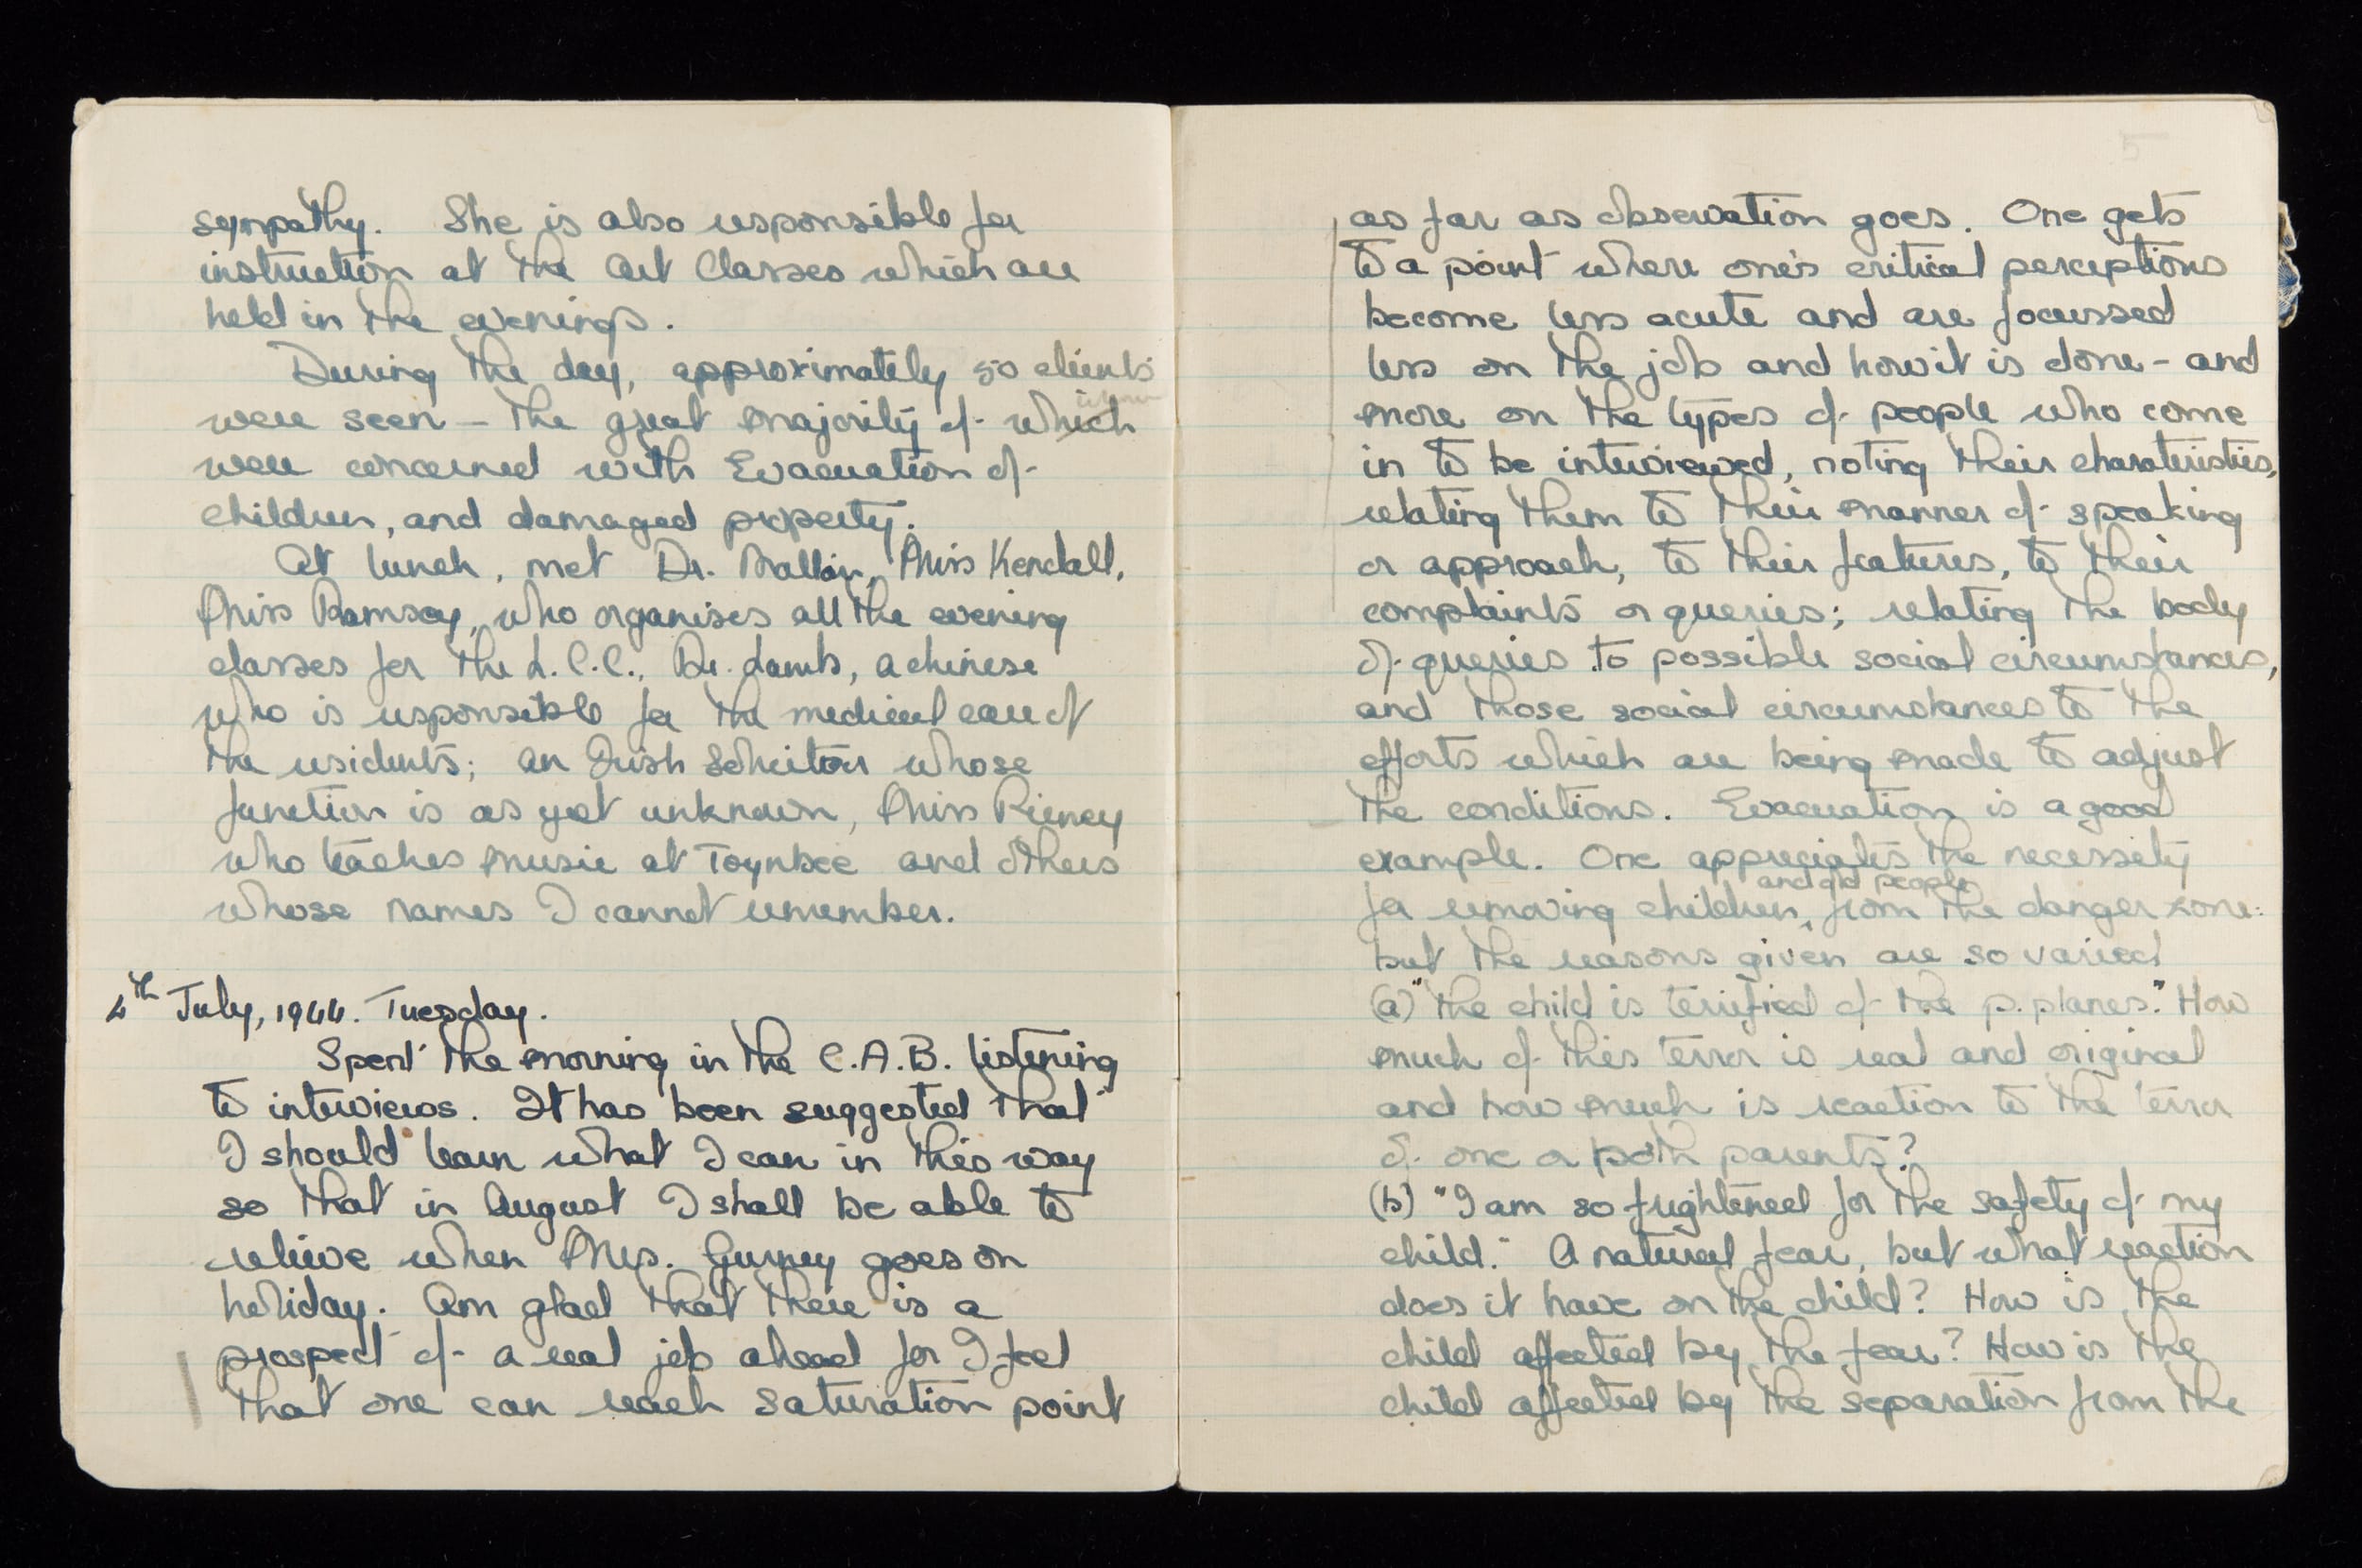 sympathy. She is also responsible for
instruction at the Art Classes which are
held in the evenings.
During the day, approximately 50 clients
were seen – the great majority of which
were concerned with Evacuation of
children, and damaged property.
At lunch, met Dr. Mallon, Miss Kendall,
Miss Ramsay, who organises all the evening
classes for the L.C.C., Dr. Lamb, a chinese
who is responsible for the medical care of
the residents; an Irish Solicitor whose
function is as yet unknown, Miss Rieney
who teaches music at Toynbee and others
whose names I cannot remember.
4th July, 1944. Tuesday.
Spent the morning in the C.A.B. listening
to interviews. It has been suggested that
I should learn what I can in this way
so that in August I shall be able to
relieve when Mrs. Gurney goes on
holiday. Am glad that there is a
prospect of a real job ahead for I feel
that one can reach saturation point
5
as far as observation goes. One gets
to a point where one's critical perceptions
become less acute and are focussed
less on the job and how it is done – and
more on the types of people who come
in to be interviewed, noting their charateristics,
relating them to their manner of speaking
or approach, to their features, to their
complaints or queries; relating the body
of queries to possible social circumstances,
and those social circumstances to the
efforts which are being made to adjust
the conditions. Evacuation is a good
example. One appreciates the necessity
and old people
for removing children, from the danger zone:
but the reasons given are so varied
(a) "the child is terrified of the p. planes." How
much of this terror is real and original
and how much is reaction to the terror
of one or both parents?
(b) "I am so frightened for the safety of my
child." A natural fear, but what reaction
does it have on the child? How is the
child affected by the fear? How is the
child affected by the separation from the